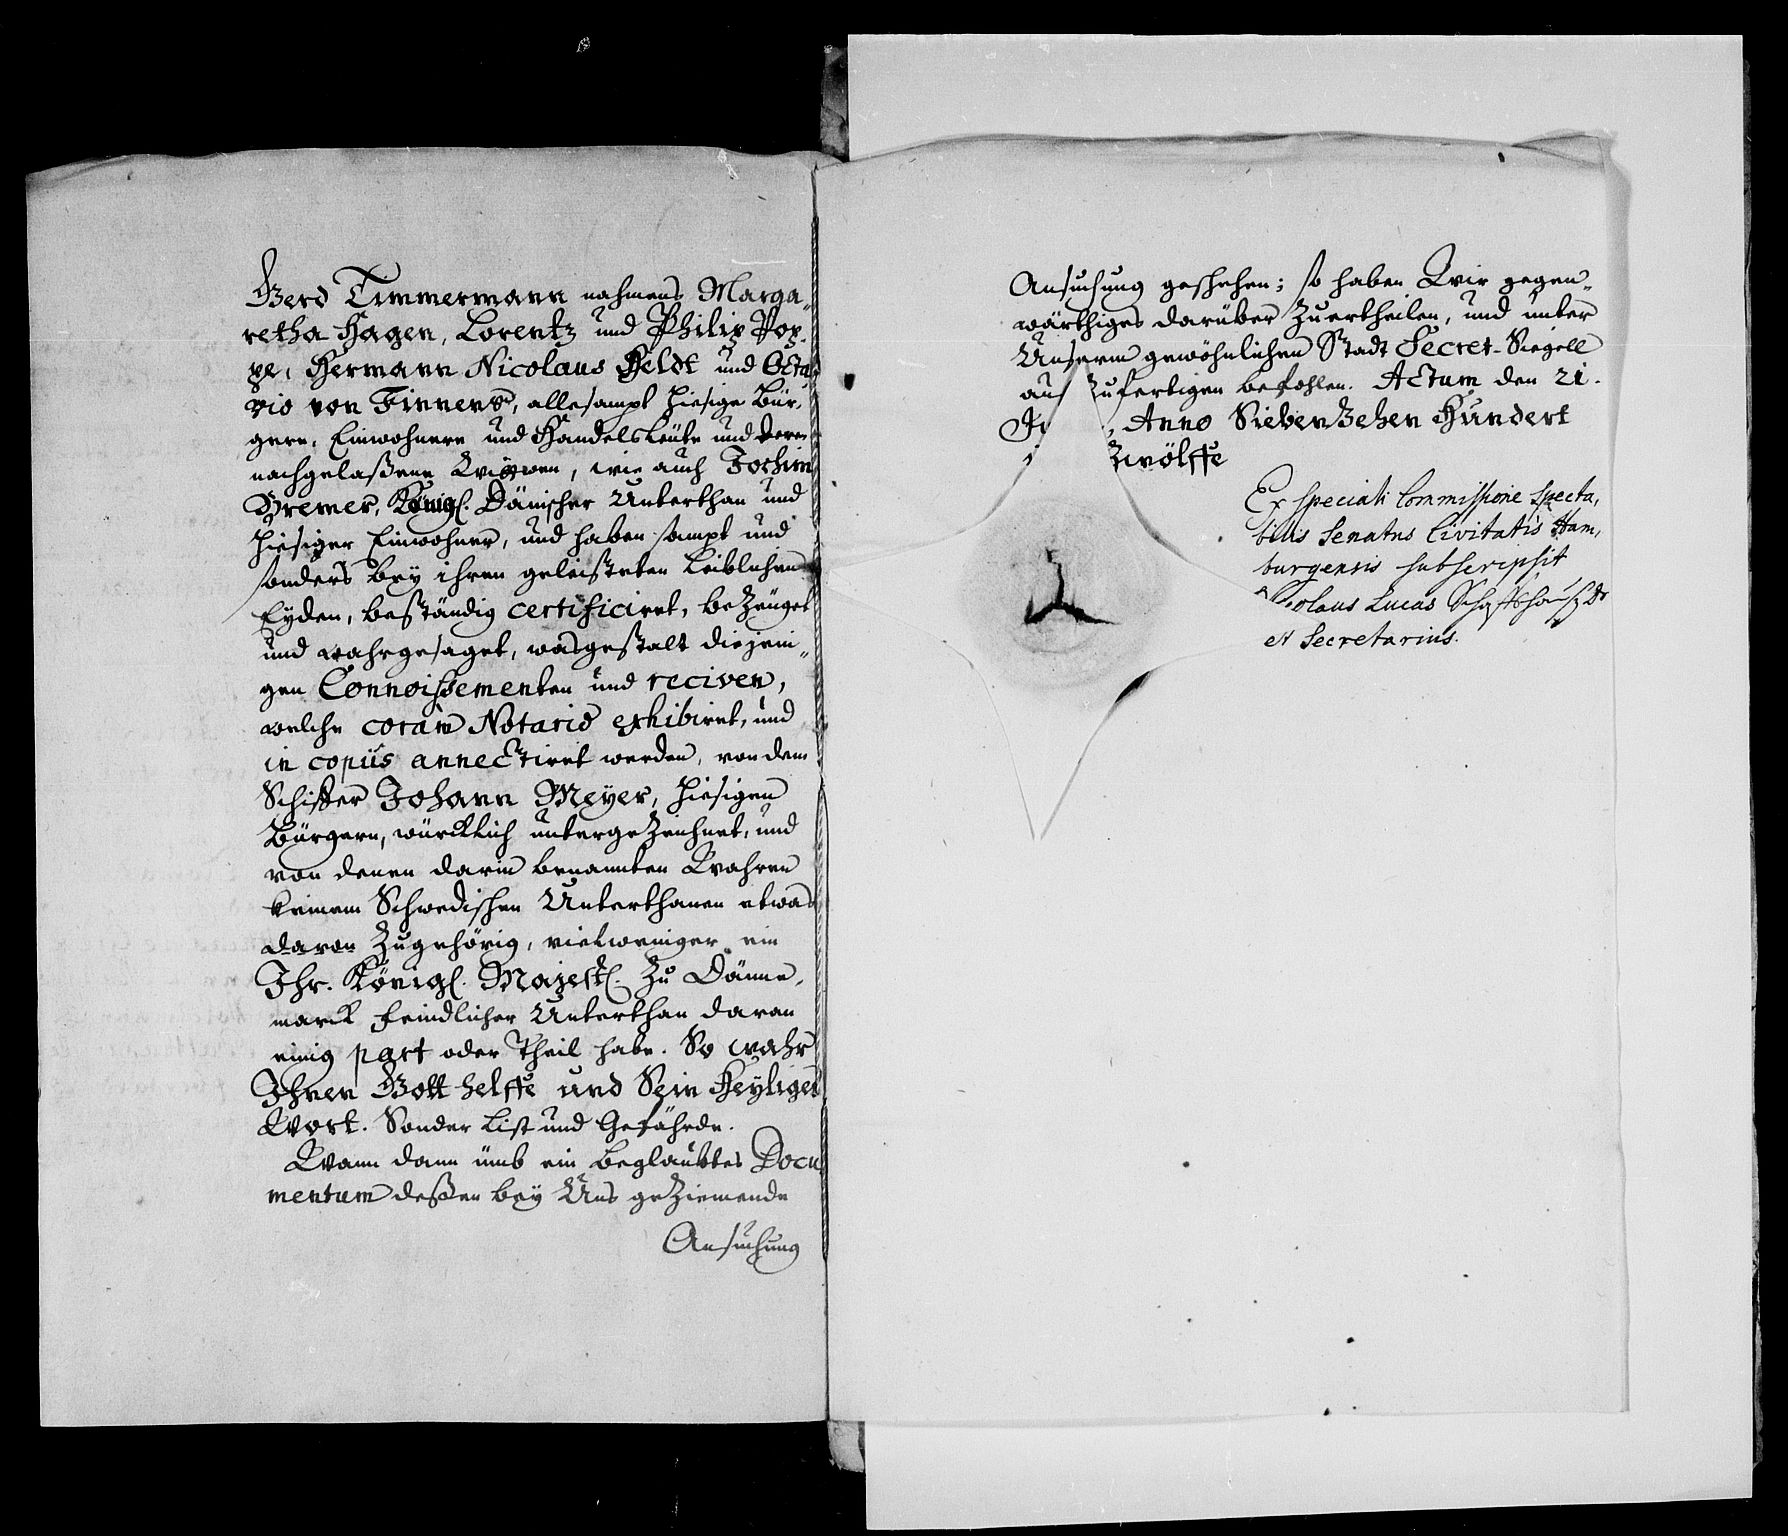 Gerd Timmermann nahmens Marga-
retha Hagen, Lorentz und Philip Pop-
pe, Hermann Nicolaus Heldt und Octa-
vio von Finnens, allesampt hiesige Bür-
gere, Einwohnere und Handelsleüte und deren
nachgelaßene Wittwen, wie auch Jochim
Bremer, Königl. Dänischer Unterthan und
hiesiger Einwohner, und haben sampt und
sonders bey ihren geleisteten Leiblichen
Eyden, beständig certificiret, bezeüget
und wahrgesaget, wasgestalt diejeni-
gen Connoissementen und reciven,
welche coram Notario exhibiret, und
in copiis annectiret werden, von dem
Schiffer Johann Meyer, hiesigen
Bürgern, würcklich unterzeichnet, und
von denen darin benannten Wahren
keinem Schwedischen Unterthanen etwas
davon zugehörig, vielweniger ein
Ihr. Königl. Majestt. zu Dänne-
marck feindlicher Unterthan daran
einig part oder Theil habe. So wahr
Ihnen Gott helffe und Sein Heyliges
Wort. Sonder List und Gefährde.
Wann dann ümb ein beglaubtes Docu-
mentum deßen bey Uns geziemende
Ansuchung
Ansuchung geschehen; so haben Wir gegen-
wärthiges darüber zuertheilen, und unter
Unserm gewöhnlichen Stadt Secret-Siegell
aus zufertigen befohlen. Actum den 21.
Anno Siebenzehen Hundert
Zwölffe
Ex speciali Commissione specta-
bilis Senatus Civitatis Ham-
burgensis subscripsit
Nicolaus Lucas Schaffshausen Dr
et Secretarius.